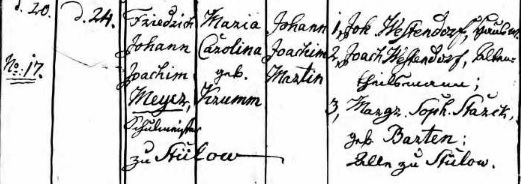 d. 20. d. 24. Friedrich Maria Johann 1, Joh. Westendorf,
Johann Carolina Joachim 2, Joach Westendorf,
No: 17. Joachim geb. Martin
Meyer, Krumm 3, Margr. Soph. Starck,
Schulmeister geb. Barten;
zu Stülow alle zu Stülow.